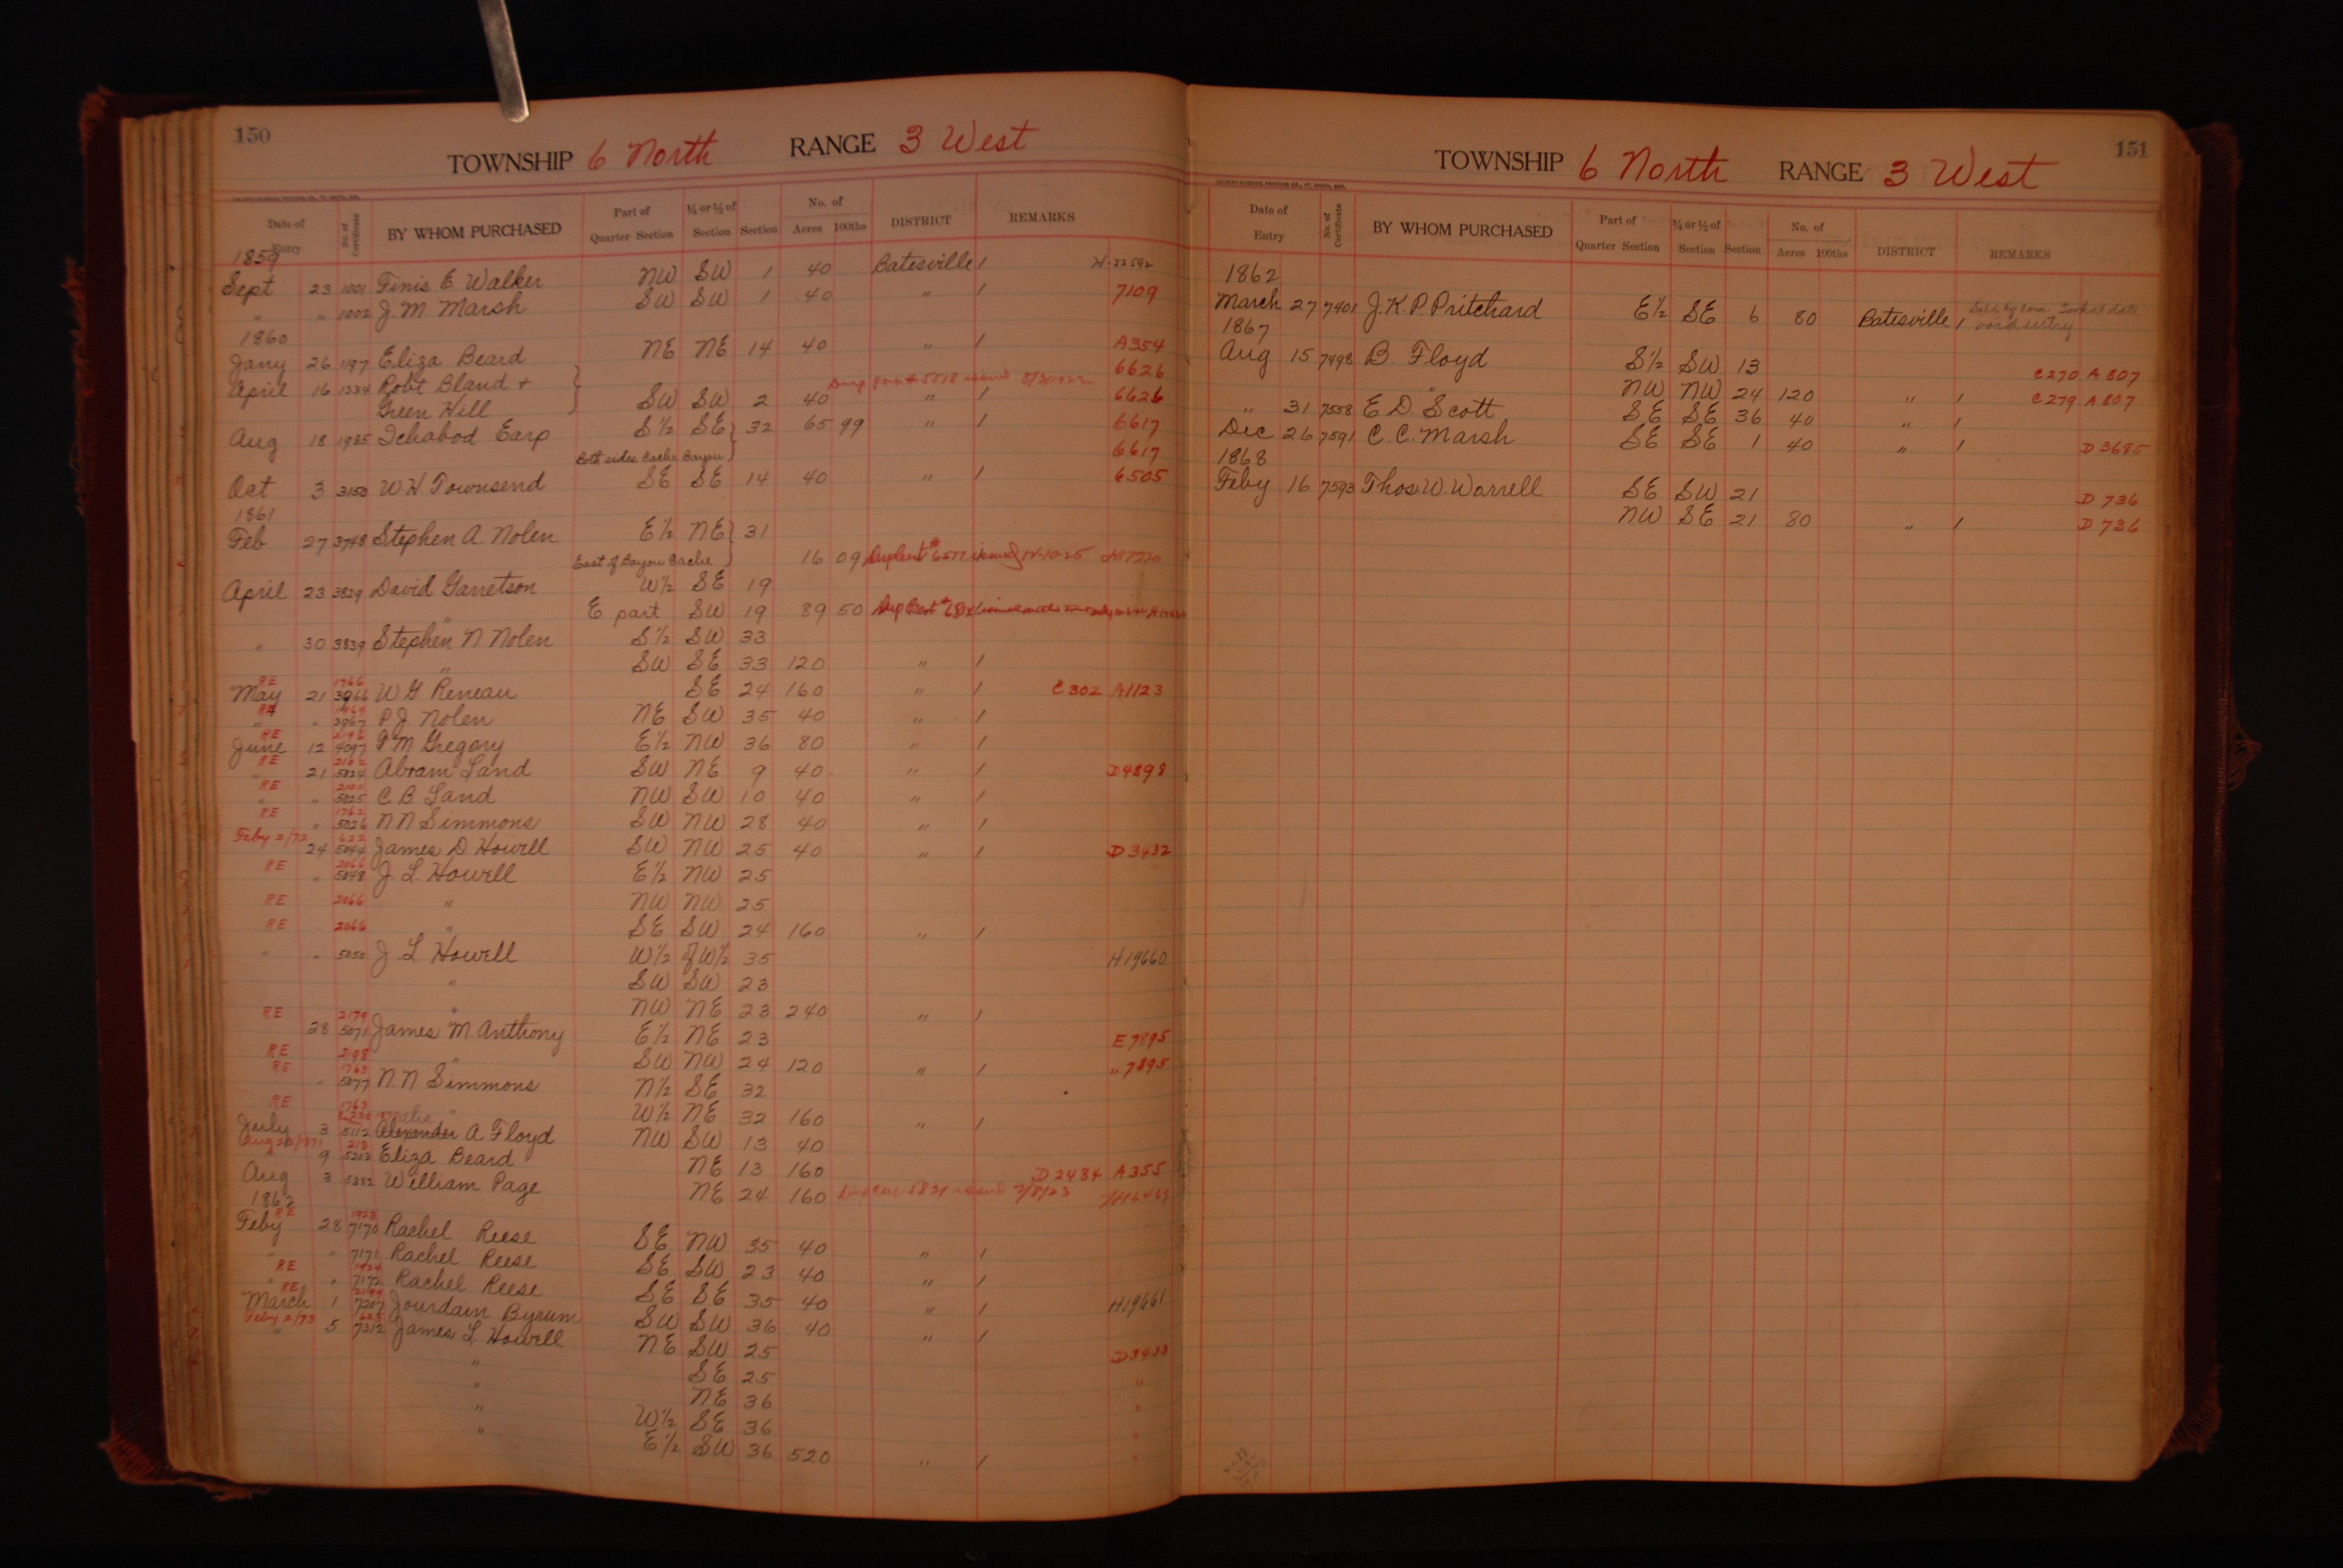 150
TOWNSHIP 6 North RANGE 3 West
Date of Entry No. of Certificate BY WHOM PURCHASED Part of Quarter Section ¼ or ½ of Section Section No. of Acres 100ths DISTRICT REMARKS
1859
Sept 23 1001 Finis E Walker NW SW 1 40 Batesville / H-22592
" " 1002 J. M. Marsh SW SW 1 40 " / 7109
1860
Jany 26 1197 Eliza Beard NE NE 14 40 " / A354
6626
April 16 1334 Robt Bland +
Green Hill SW SW 2 40 " / 6626
Aug 18 1985 Ichabod Earp S½ SE 32 65 99 " / 6617
Both sides Cache Bayou 6617
Oct 3 3150 W. H. Townsend SE SE 14 40 " / 6505
1861
Feb 27 3748 Stephen A. Nolen E½ NE 31
East of Bayou Cache 16 09
April 23 3829 David Garretson W½ SE 19
" E part SW 19 89 50
" 30 3839 Stephen N Nolen S½ SW 33
" SW SE 33 120 " /
RE 1766
May 21 3966 W G Reneau SE 24 160 " / C 302 A1123
RE
" " 3967 P. J. Nolen NE SW 35 40 " /
RE
June 12 4097 P M Gregory E½ NW 36 80 " /
RE
" 21 5024 Abram Land SW NE 9 40 " / D4898
RE
" " 5025 C B Land NW SW 10 40 " /
RE 1762
" 5026 N N Simmons SW NW 28 40 " /
Feby 2/73 622
24 5044 James D. Howell SW NW 25 40 " / D 3432
RE 2066
" 5048 J. L. Howell E½ NW 25
RE 2066 " NW NW 25
RE 2066 " SE SW 24 160 " /
" " 5050 J L Howell W½ of W½ 35 H19660
" SW SW 23
" NW NE 23 240 " /
RE 2179
28 5071 James M. Anthony E½ NE 23 E 7895
RE 2198 " SW NW 24 120 " / " 7895
RE 1763
" 5077 N. N Simmons N½ SE 32
RE 1763 " W½ NE 32 160 " /
July 3 5112 Alexander A Floyd NW SW 13 40
9 Eliza Beard NE 13 160 D 2484 A355
Aug 2 William Page NE 24 160
1862
RE 1923
Feby 28 7170 Rachel Reese SE NW 35 40 " /
" " 7171 Rachel Reese SE SW 23 40 " /
RE 1924
" " 7172 Rachel Reese SE SE 35 40 " / H19661
RE
March 1 7207 Jourdain Byrum SW SW 36 40 " /
Feby 2/73 623
" 5 7312 James L Howell NE SW 25 D3433
" SE 25 "
" NE 36 "
" W½ SE 36 "
" E½ SW 36 520 " / "
151
TOWNSHIP 6 North RANGE 3 West
Date of Entry No. of Certificate BY WHOM PURCHASED Part of Quarter Section ¼ or ½ of Section Section No. of Acres 100ths DISTRICT REMARKS
1862
March 27 7401 J. K. P. Pritchard E½ SE 6 80 Batesville / void entry
1867
Aug 15 7498 B. Floyd S½ SW 13 C270 A 807
" NW NW 24 120 " / C279 A807
" 31 7558 E. D. Scott SE SE 36 40 " /
Dec 26 7591 C. C. Marsh SE SE 1 40 " / D 3685
1868
Feby 16 7593 Thos. W. Worrell SE SW 21 D 736
NW SE 21 80 " / D 736